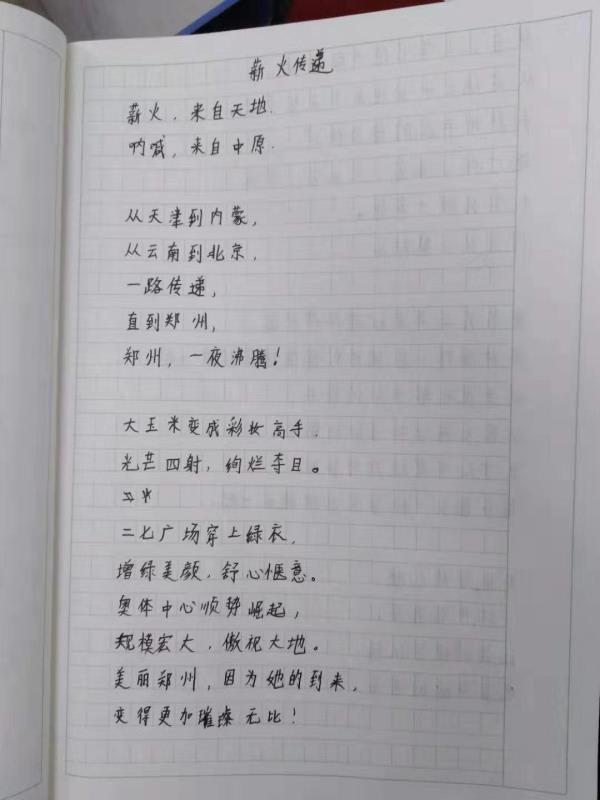 薪火传递
薪火，来自天地.
呐喊，来自中原.
从天津到内蒙，
从云南到北京，
一路传递，
直到郑州，
郑州，一夜沸腾！
大玉米变成彩妆高手.
光芒四射，绚烂夺目。
二七广场穿上绿衣，
增绿美颜，舒心惬意。
奥体中心顺势崛起，
规模宏大，傲视大地。
美丽郑州，因为她的到来，
变得更加璀璨无比！